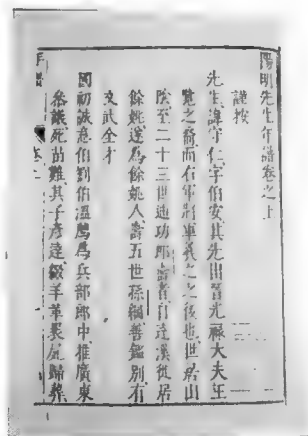 陽明先生年譜卷之上
謹按
先生諱守仁字伯安其先出晉光祿大夫王
覽之裔而右軍將軍羲之之後也世居山
陰至二十三世迪功郎壽者自達溪徙居
餘姚遂為餘姚人壽五世孫綱善鑑別有
文武全才
國初誠意伯劉伯溫薦為兵部郎中推廣東
參議死苗難其子彥達綴羊革裹屍歸葬
年譜